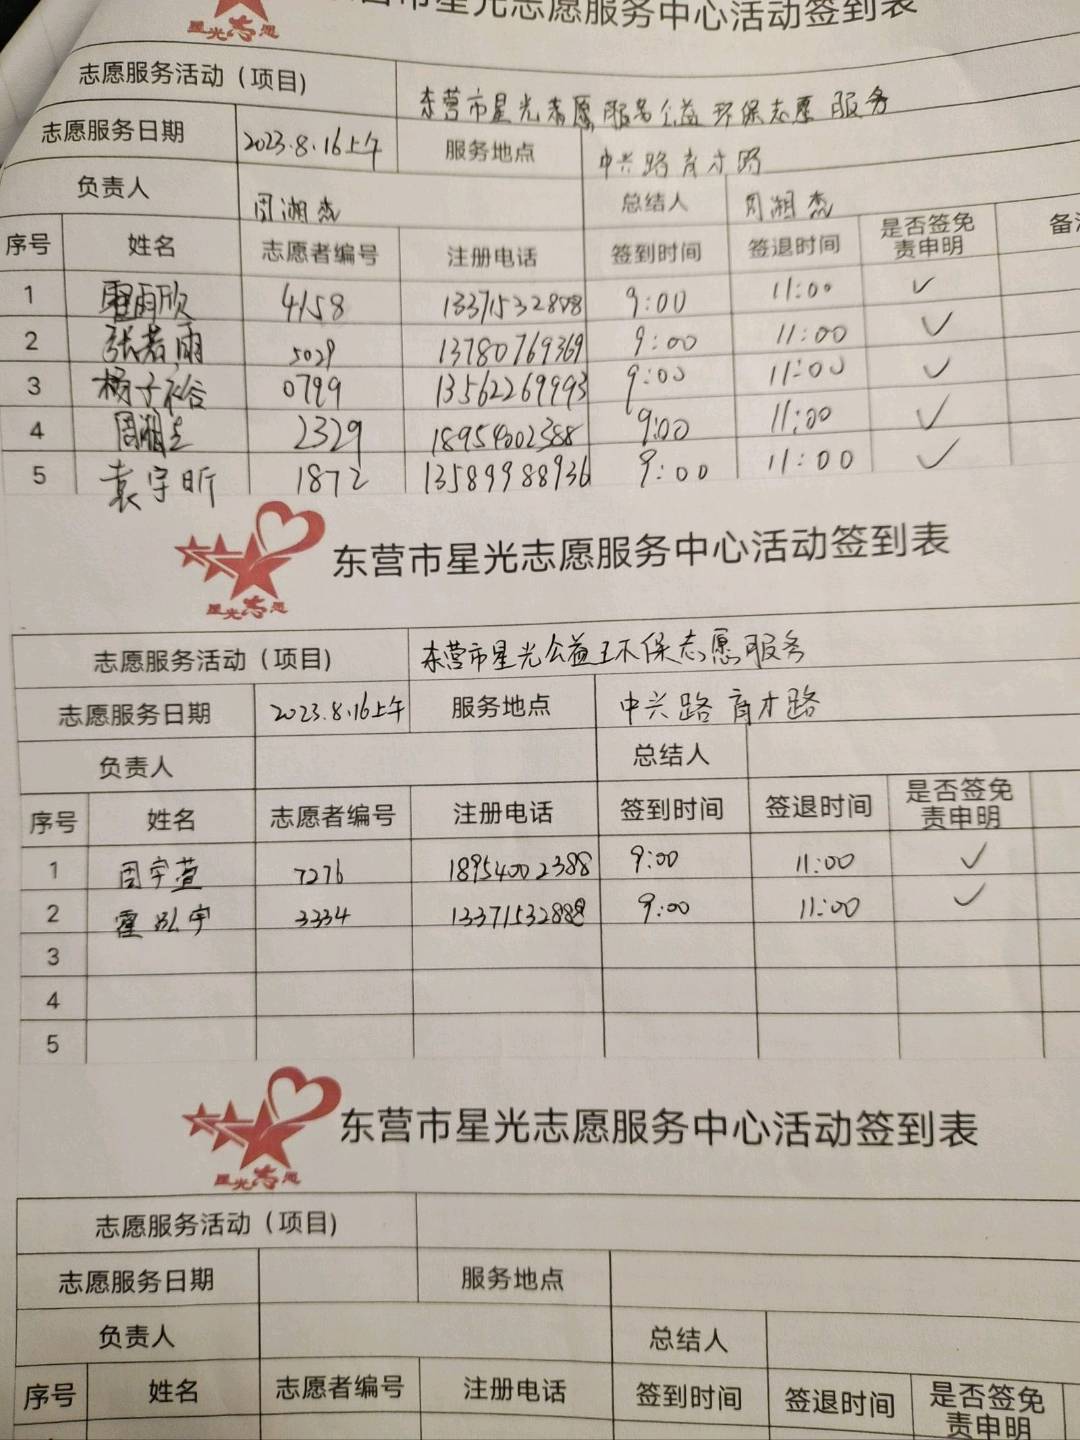 星光志愿
东营市星光志愿服务中心活动签到表
志愿服务活动（项目） 东营市星光志愿服务公益环保志愿服务
志愿服务日期 2023.8.16上午 服务地点 中兴路育才路
负责人 周湘杰 总结人 周湘杰
序号 姓名 志愿者编号 注册电话 签到时间 签退时间 是否签免责申明 备
1 霍雨欣 4158 13371532888 9:00 11:00 ✓
2 张若雨 5029 13780769369 9:00 11:00 ✓
3 杨子裕 0799 13562269993 9:00 11:00 ✓
4 2329 18954002388 9:00 11:00 ✓
5 袁宇昕 1872 13589988936 9:00 11:00 ✓
星光志愿
东营市星光志愿服务中心活动签到表
志愿服务活动（项目） 东营市星光公益环保志愿服务
志愿服务日期 2023.8.16上午 服务地点 中兴路育才路
负责人 总结人
序号 姓名 志愿者编号 注册电话 签到时间 签退时间 是否签免责申明
1 周宇萱 7276 18954002388 9:00 11:00 ✓
2 霍弘宇 3334 13371532888 9:00 11:00 ✓
3
4
5
星光志愿
东营市星光志愿服务中心活动签到表
志愿服务活动（项目）
志愿服务日期 服务地点
负责人 总结人
序号 姓名 志愿者编号 注册电话 签到时间 签退时间 是否签免责申明